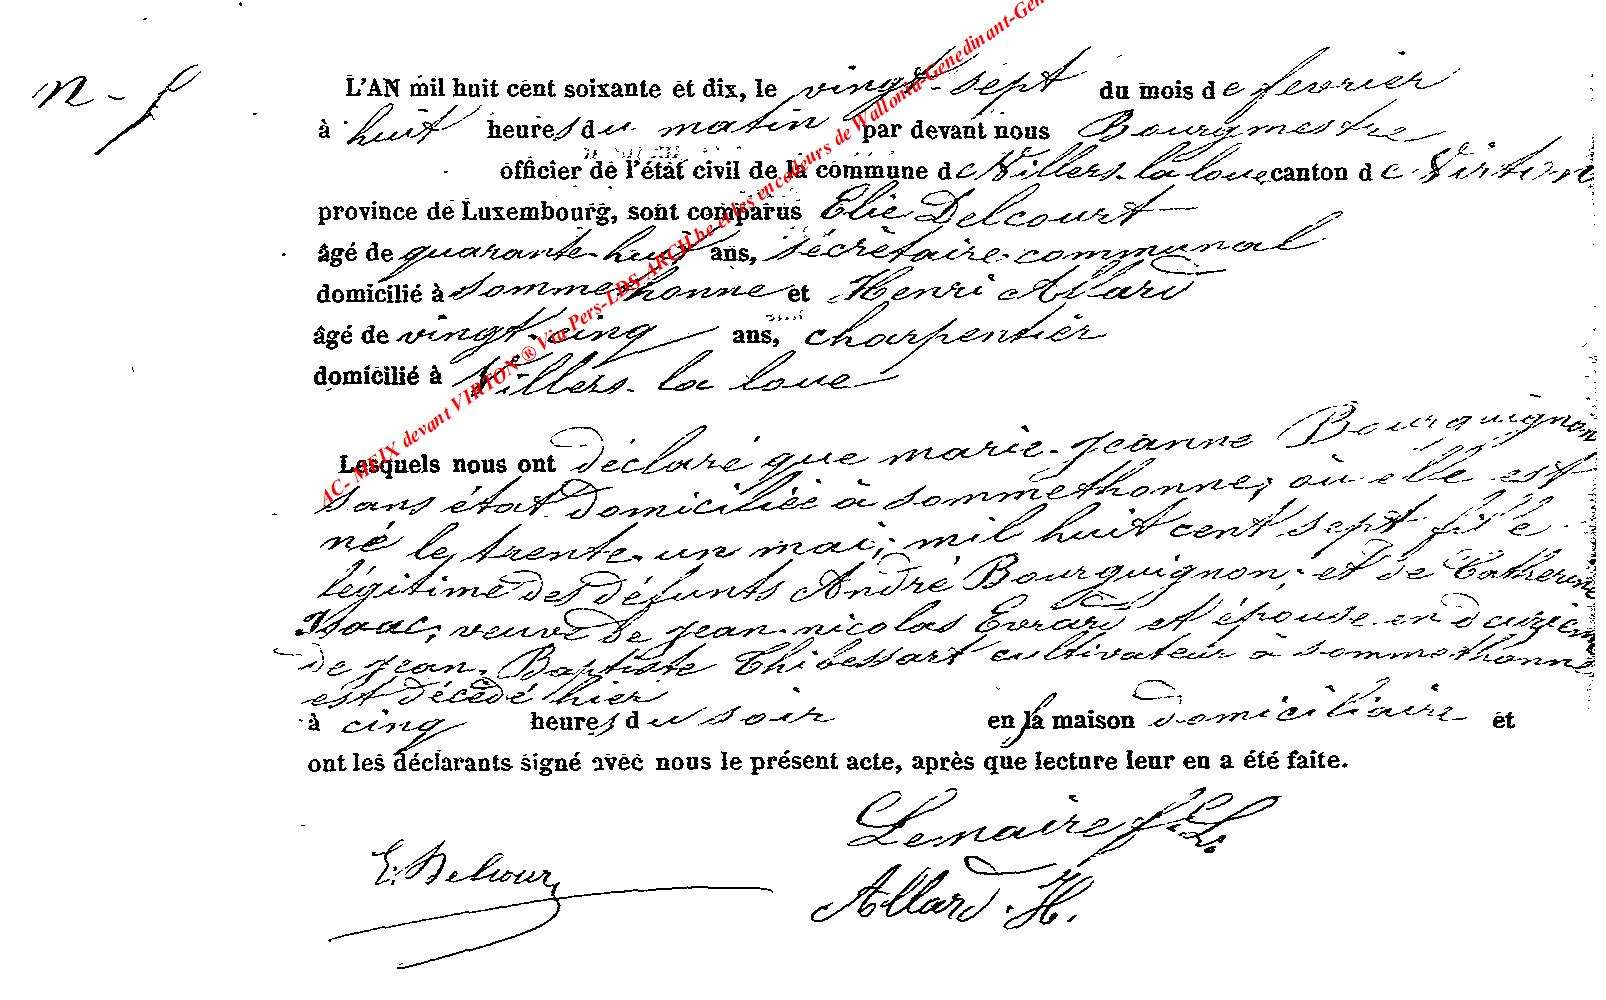 n - 5
L'AN mil huit cent soixante et dix, le vingt-sept du mois de fevrier
à huit heures du matin par devant nous Bourgmestre
officier de l'état civil de la commune de Villers-la loue canton de Virton
province de Luxembourg, sont comparus Elie Delcourt
âgé de quarante-huit ans, sécrètaire-communal
domicilié à Sommethonne et Henri Allard
âgé de vingt-cinq ans, charpentiér
domicilié à Villers-la loue
Lesquels nous ont déclaré que marie-jeanne Bourguignon
sans état domiciliée à sommethonne, où elle est
né le trente-un mai, mil huit cent sept fille
légitime des défunts André Bourguignon, et de Catherine
Isaac, veuve de jean-nicolas Evrard et épouse en deuzieme
de jean-Baptiste Thibessart cultivateur à sommethonne
est décédé hier
à cinq heures du soir en la maison domiciliaire et
ont les déclarants signé avec nous le présent acte, après que lecture leur en a été faite.
Lemaire f. L.
E. Delcour
Allard. H.
AC- MEIX devant VIRTON® Via Pers-LDS-ARCH.be et les encodeurs de Wallonia-Genedinant-Gen